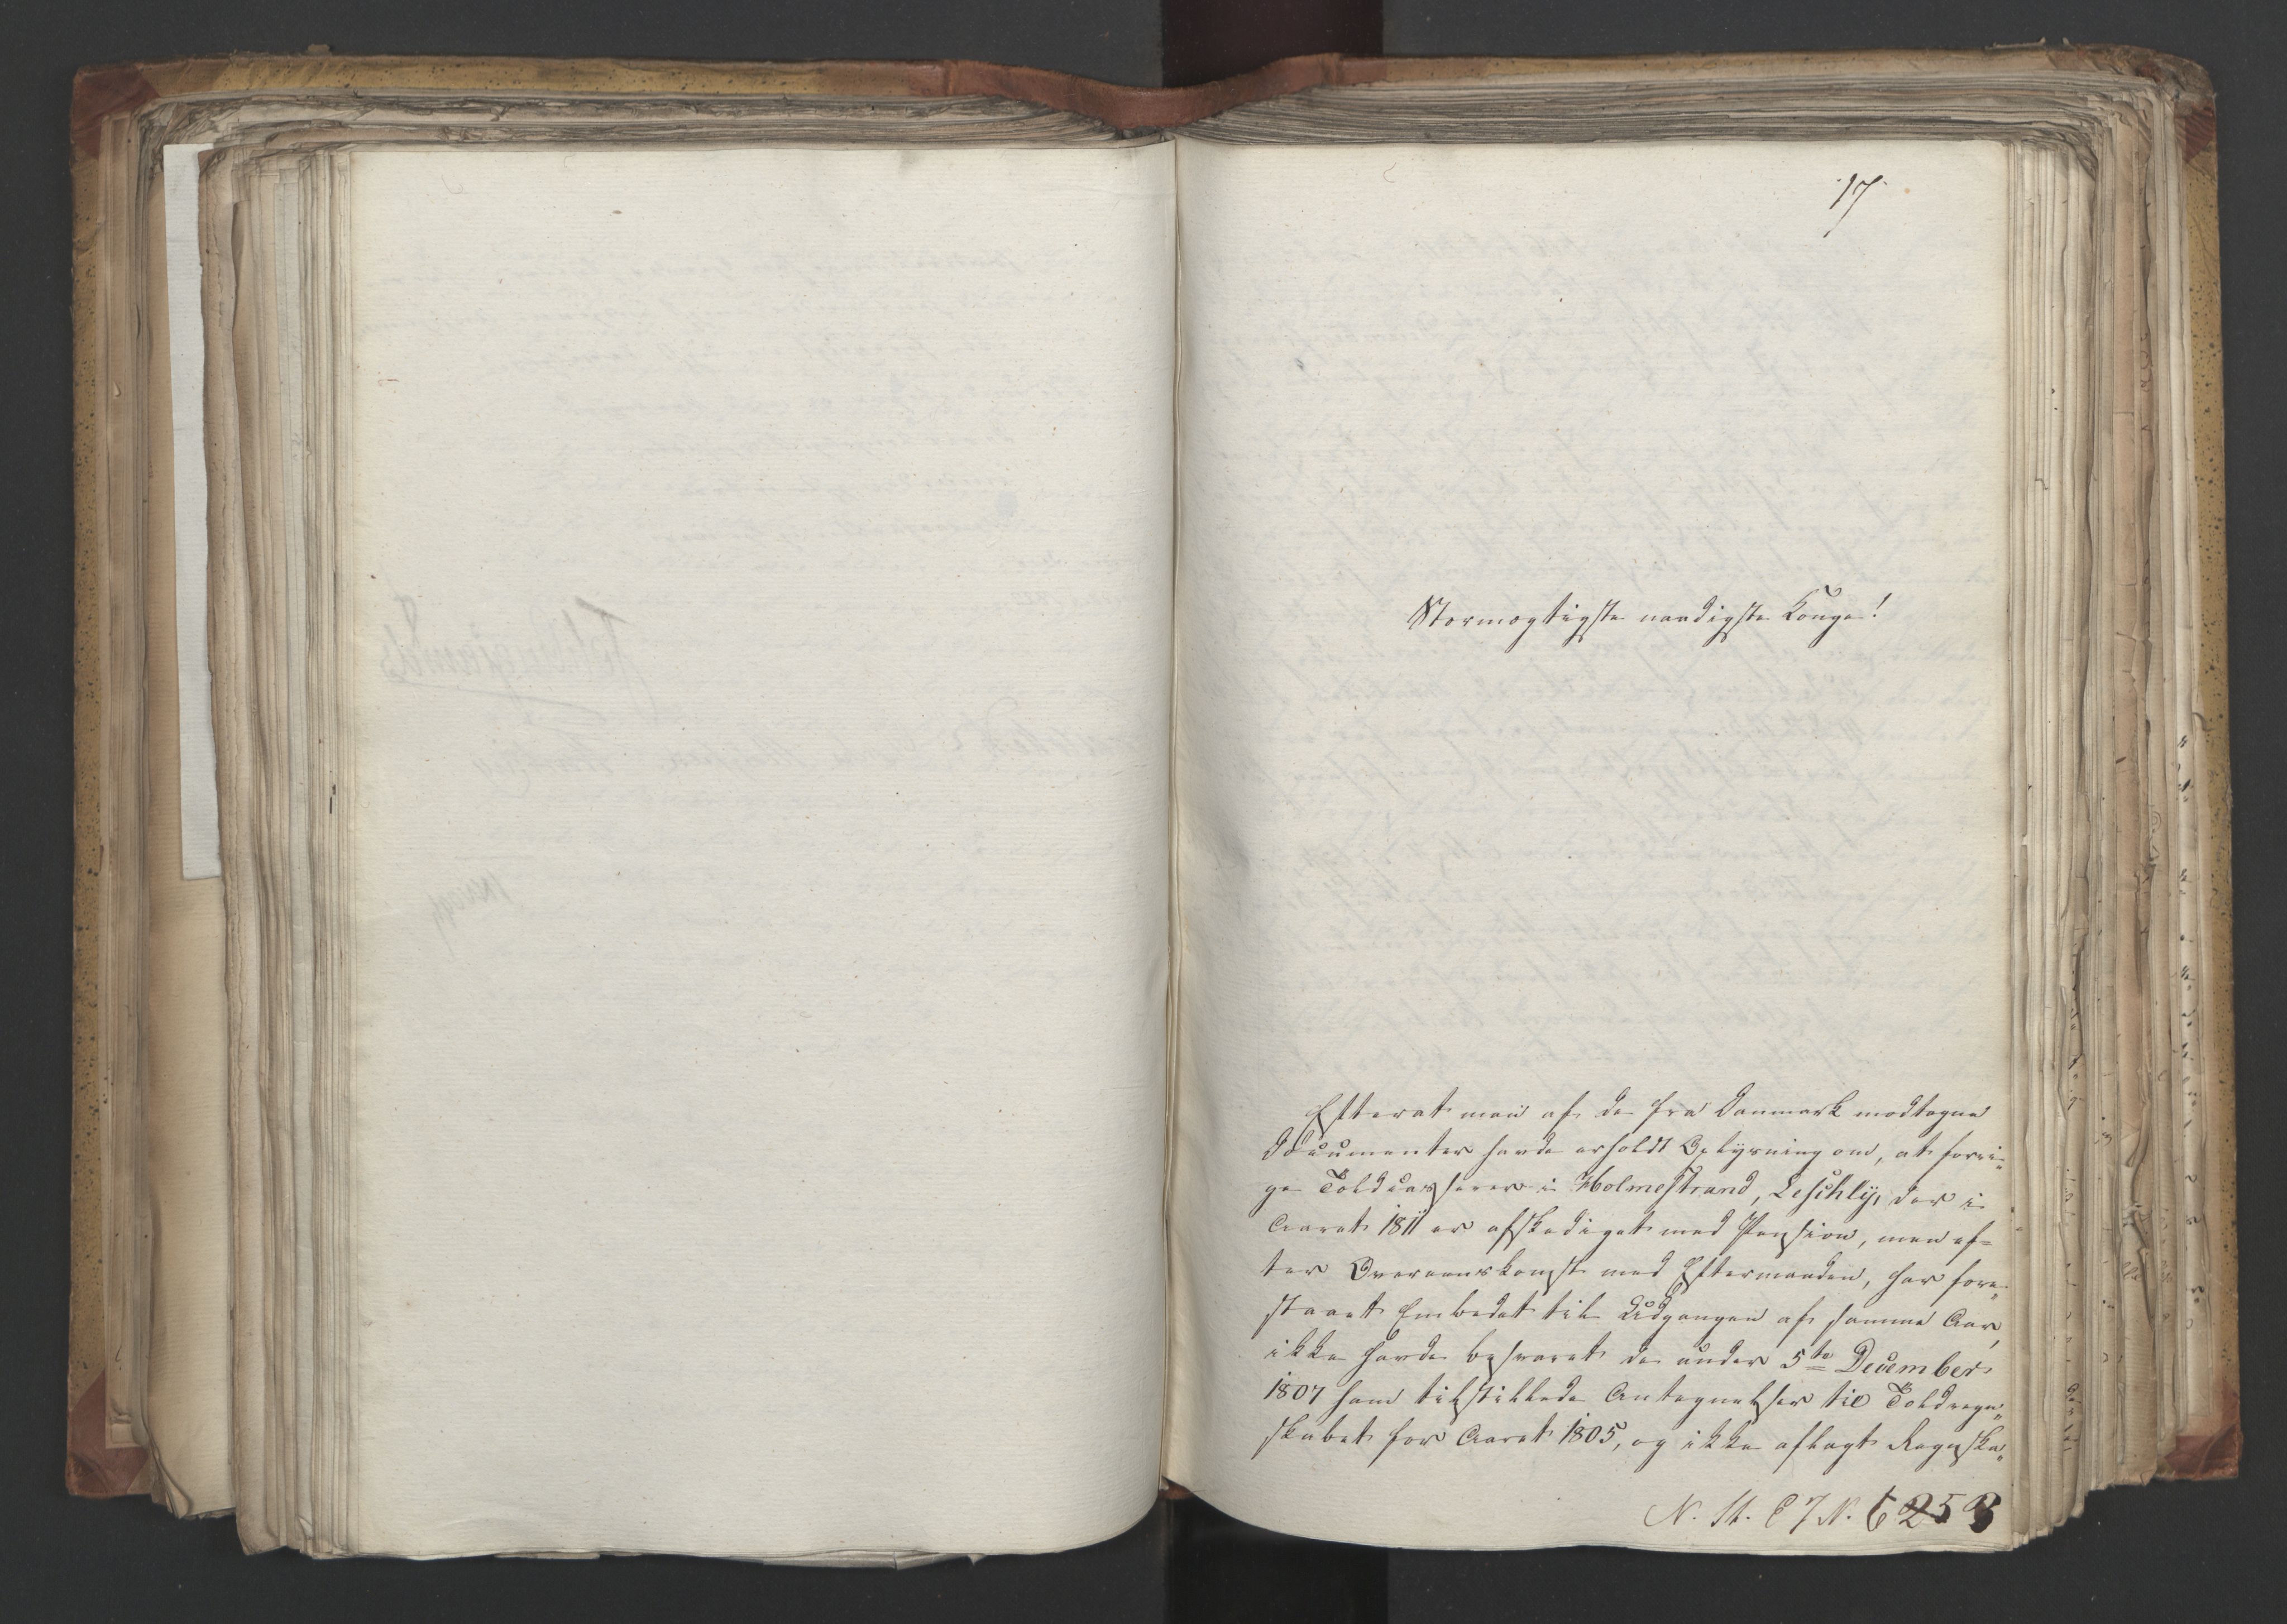 17.
Stormægtigste naadigste Konge!
Efterat man af de fra Danmark modtagne
Documenter havde erholdt Oplysning om, at forri-
ge Toldcasserer i Holmestrand, Leschly, der i
Aaret 1811 er afskediget med Pension, men ef-
ter Overeenskomst med Eftermanden, har fore-
staaet Embedet til Udgangen af samme Aar,
ikke havde besvaret de under 5te December
1807 ham tilstillede Antegnelser til Toldregn-
skabet for Aaret 1805, og ikke aflagt Regnska-
N. St. C 7 N. 6253